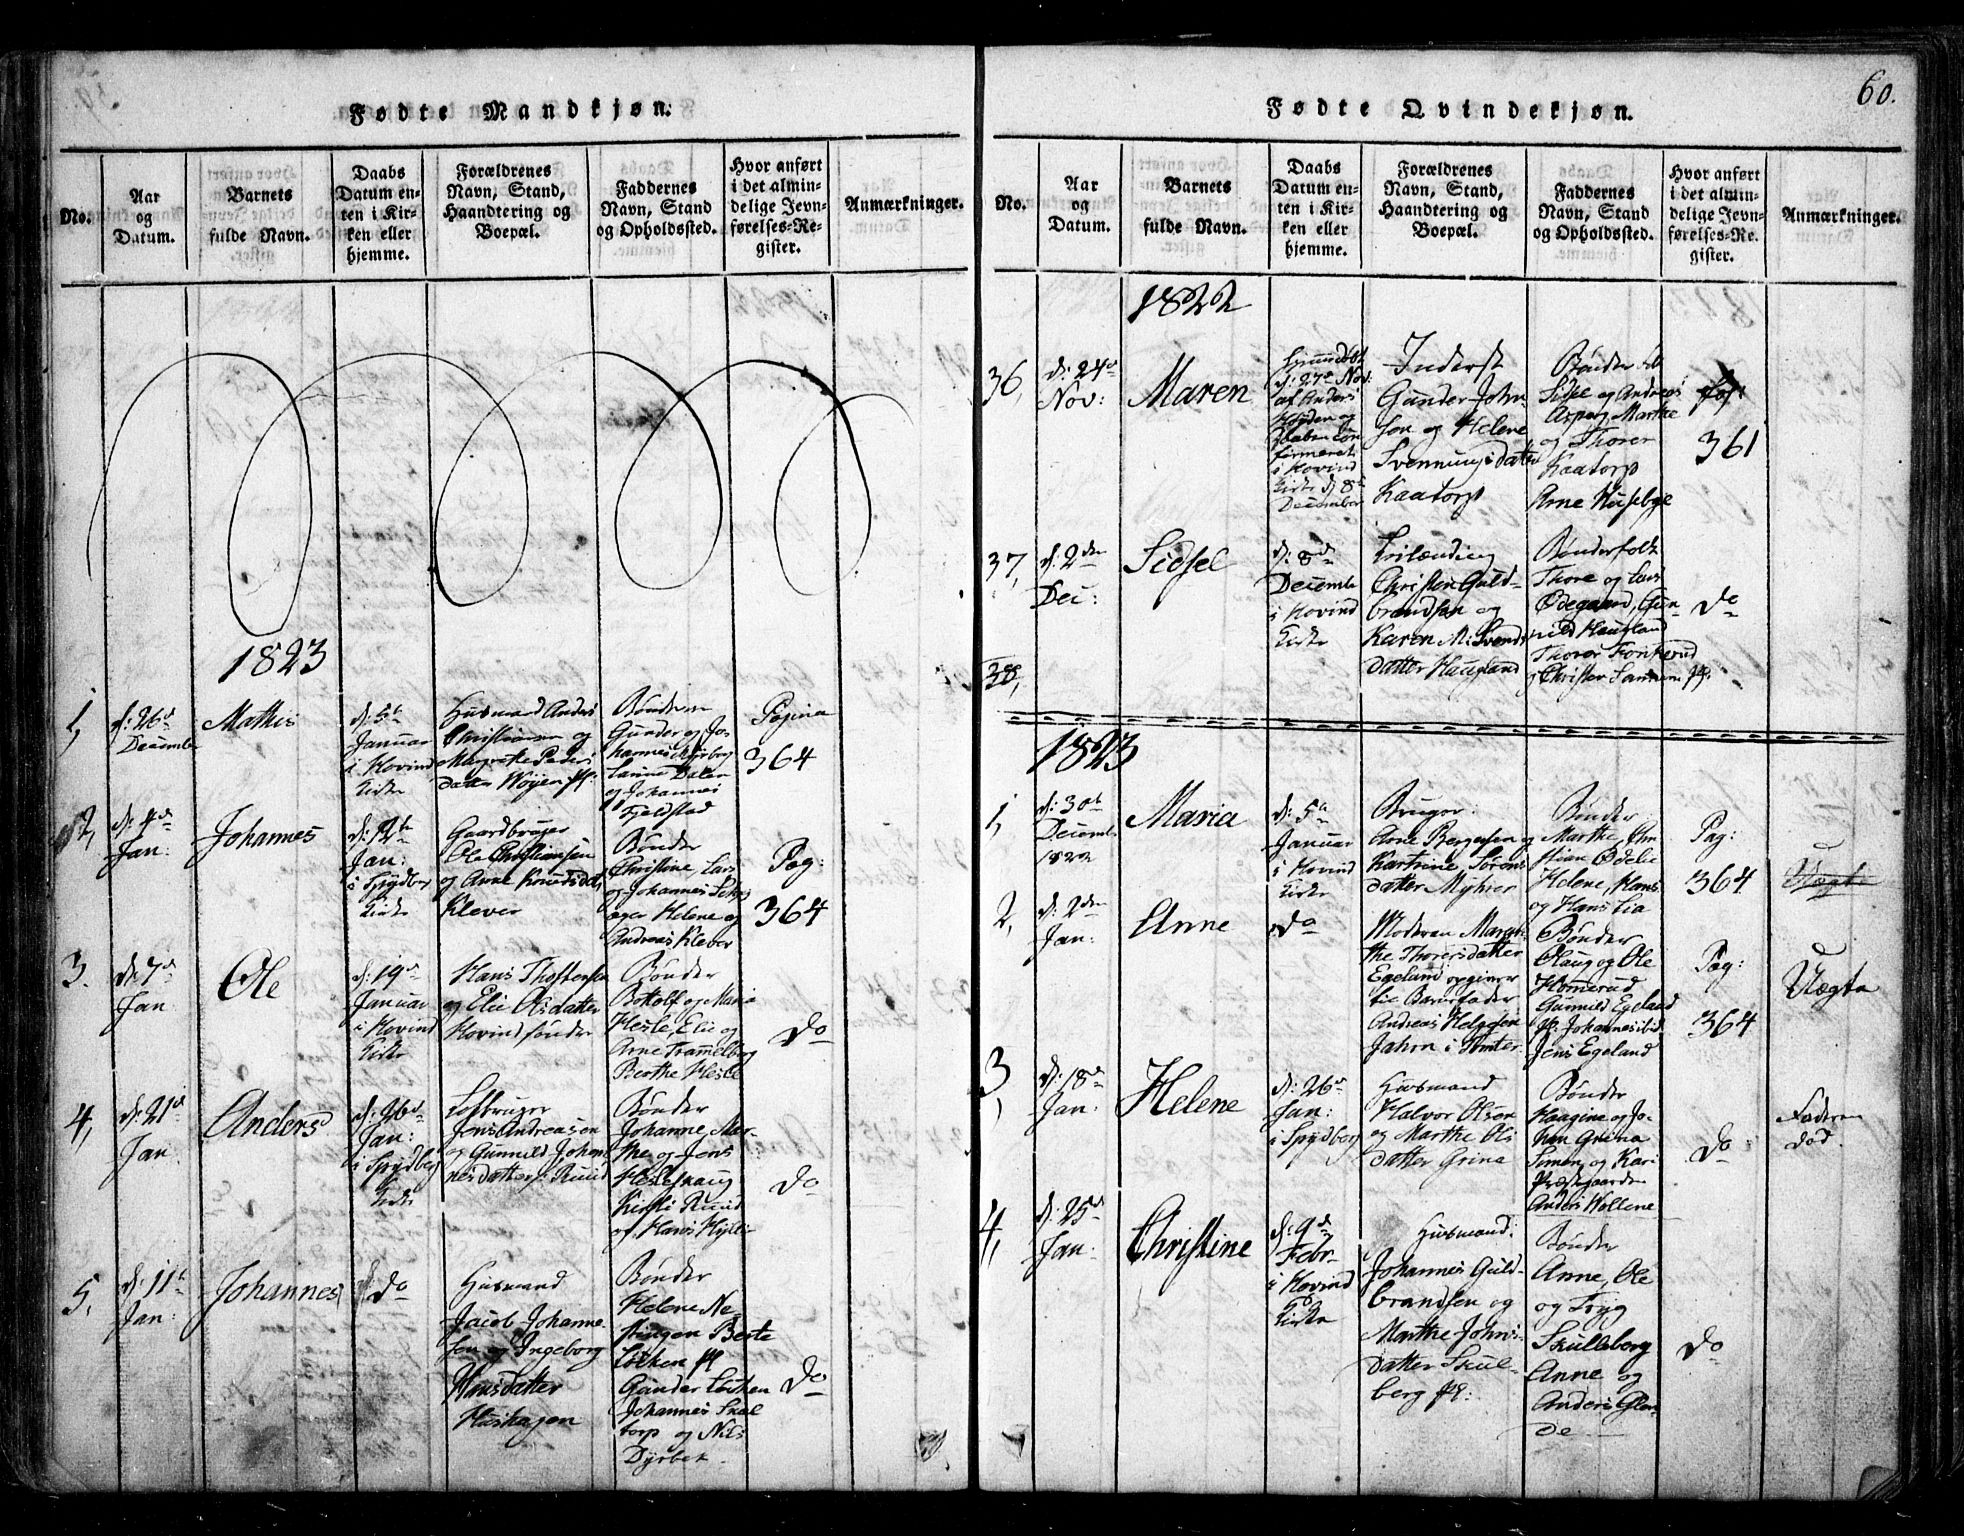 60.
Fødte Mandkjøn.
No.
Aar
og
Datum.
Barnets
fulde Navn.
Daabs
Datum en-
ten i Kir-
ken eller
hjemme.
Forældrenes
Navn, Stand,
Haandtering og
Boepæl.
Faddernes
Navn, Stand
og Opholdssted.
Hvor anført
i det almin-
delige Jevn-
førelses-Re-
gister.
Anmærkninger.
1823
1,
d: 26d
Decembr
Mathis
d: 5te
Januar
i Hovind
Kirke
Husmand Anders
Christiansen og
Margrethe Peders
datter Wøyen
Bønder
Gunder og Jo-
hannes Myrbog
Dalen
og Johannes
Fjeldstad
Pagina
364
2,
d: 4de
Jan:
Johannes
d: 12te
Jan:
i Spydbrg
Kirke
Gaardbruger
Ole Christiansen
og Anne Knudsdatr
Klever
Bønder
Christine, Lars
og Johannes
Helene og
Andreas Klever
Pag:
364
3.
d: 7d
Jan
Ole
d: 19d
Januar
i Hovind
Kirke
Hans Thostensen
og Elie Olsdatter
Hovind søndre
Bønder
Bottolf og Maria
Hesle, Elie og
Arne Trammelborg
Berthe Hesle
do
4,
d: 21d
Jan
Anders
d: 26d
Jan:
i Spydberg
Kirke
Jens Andreasen
og Gunnild Johan
nesdatter Ruud
Bønder
Johanne Mar-
the og Jens
Hesleshaug
Kirsti Ruud
og Hans
do
5,
d: 11t
Jan:
Johannes
do
Husmand
Jacob Johanne-
sen og Ingeborg
Hansdatter
Bønder
Helene Ne-
Berte
Løcken
Gunder Løcken
Johannes Skal
torp og Nils
Dyrbek
do
Fødte Qvindekjøn.
No.
Aar
og
Datum.
Barnets
fulde Navn.
Daabs
Datum en-
ten i Kir-
ken eller
hjemme.
Forældrenes
Navn, Stand,
Haandtering og
Boepæl.
Faddernes
Navn, Stand
og Opholdssted.
Hvor anført
i det almin-
delige Jevn-
førelses-Re-
gister.
Anmærkninger.
1822
36,
d: 24d
Nov:
Maren
Hjemmedøbt
d: 27d Nov:
af Anders
Høyden og
Daaben con
firmeret
i Hovind
Kirke d 8d
December
Inderst
Gunder John-
son og Helene
Svennungsdatter
Kaatorp
Bønder
Sidsel og Andreas
Marthe
og Thorer
Kaatorp
Arne Husebye
361
37,
d: 2den
Dec:
Sidsel
d: 8d
Decembr
i Hovind
Kirke
Christen Guld-
brandsen og
Karen M. Svends
datter Haugland
Bønderfolk
Thore og Lars
Ødegaard, Gun-
nild Haugland
Thorer Fonkerud
do
38,
1823
1,
d: 30te
Decemb:
1822
Maria
d: 5te
Januar
i Hovind
Kirke
Bruger:
Arne Børgesen og
Kathrine Sørens
datter Myhrer
Bønder
Marthe, Chri-
stian Ødelie
Helene, Hans
og Hans Lia
Pag:
364
Uægte
2,
d: 2den
Jan:
Anne
do
Moderen Margre-
the Thorersdatter
Egeland opgiver
til Barnefader
Andreas Helgesen
Jahrn i Tomter
Bønder
Olaug og Ole
Homerud
Gunnild Egeland
Johannes ibid
Jens Egeland
Pag:
364
Uægta
3,
d: 18d
Jan:
Helene
d: 26d
Jan:
i Spydberg
Husmand
Halvor Olsen
og Marthe Ols
datter Grina
Bønder
Haagine og Jo-
han Grina
Simen og Kari
Præstgaarden
Anders Hollene
do
Faderen
død.
4,
d: 25d
Jan:
Christine
d: 9d
Febr
i Hovind
Kirke
Husmand:
Johannes Guld-
brandsen og
Marthe Johns-
datter Skul-
berg
Bønder
Anne, Ole
og Tryg
Skulleberg
Anne og
Anders Glen-
de
do